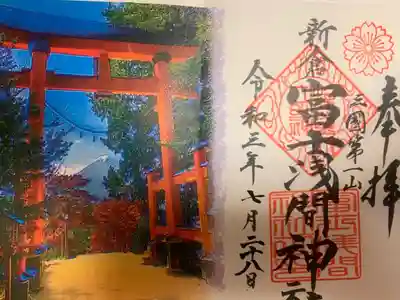 奉拝
三國第一山
新倉富士浅間神社
令和三年七月二十八日